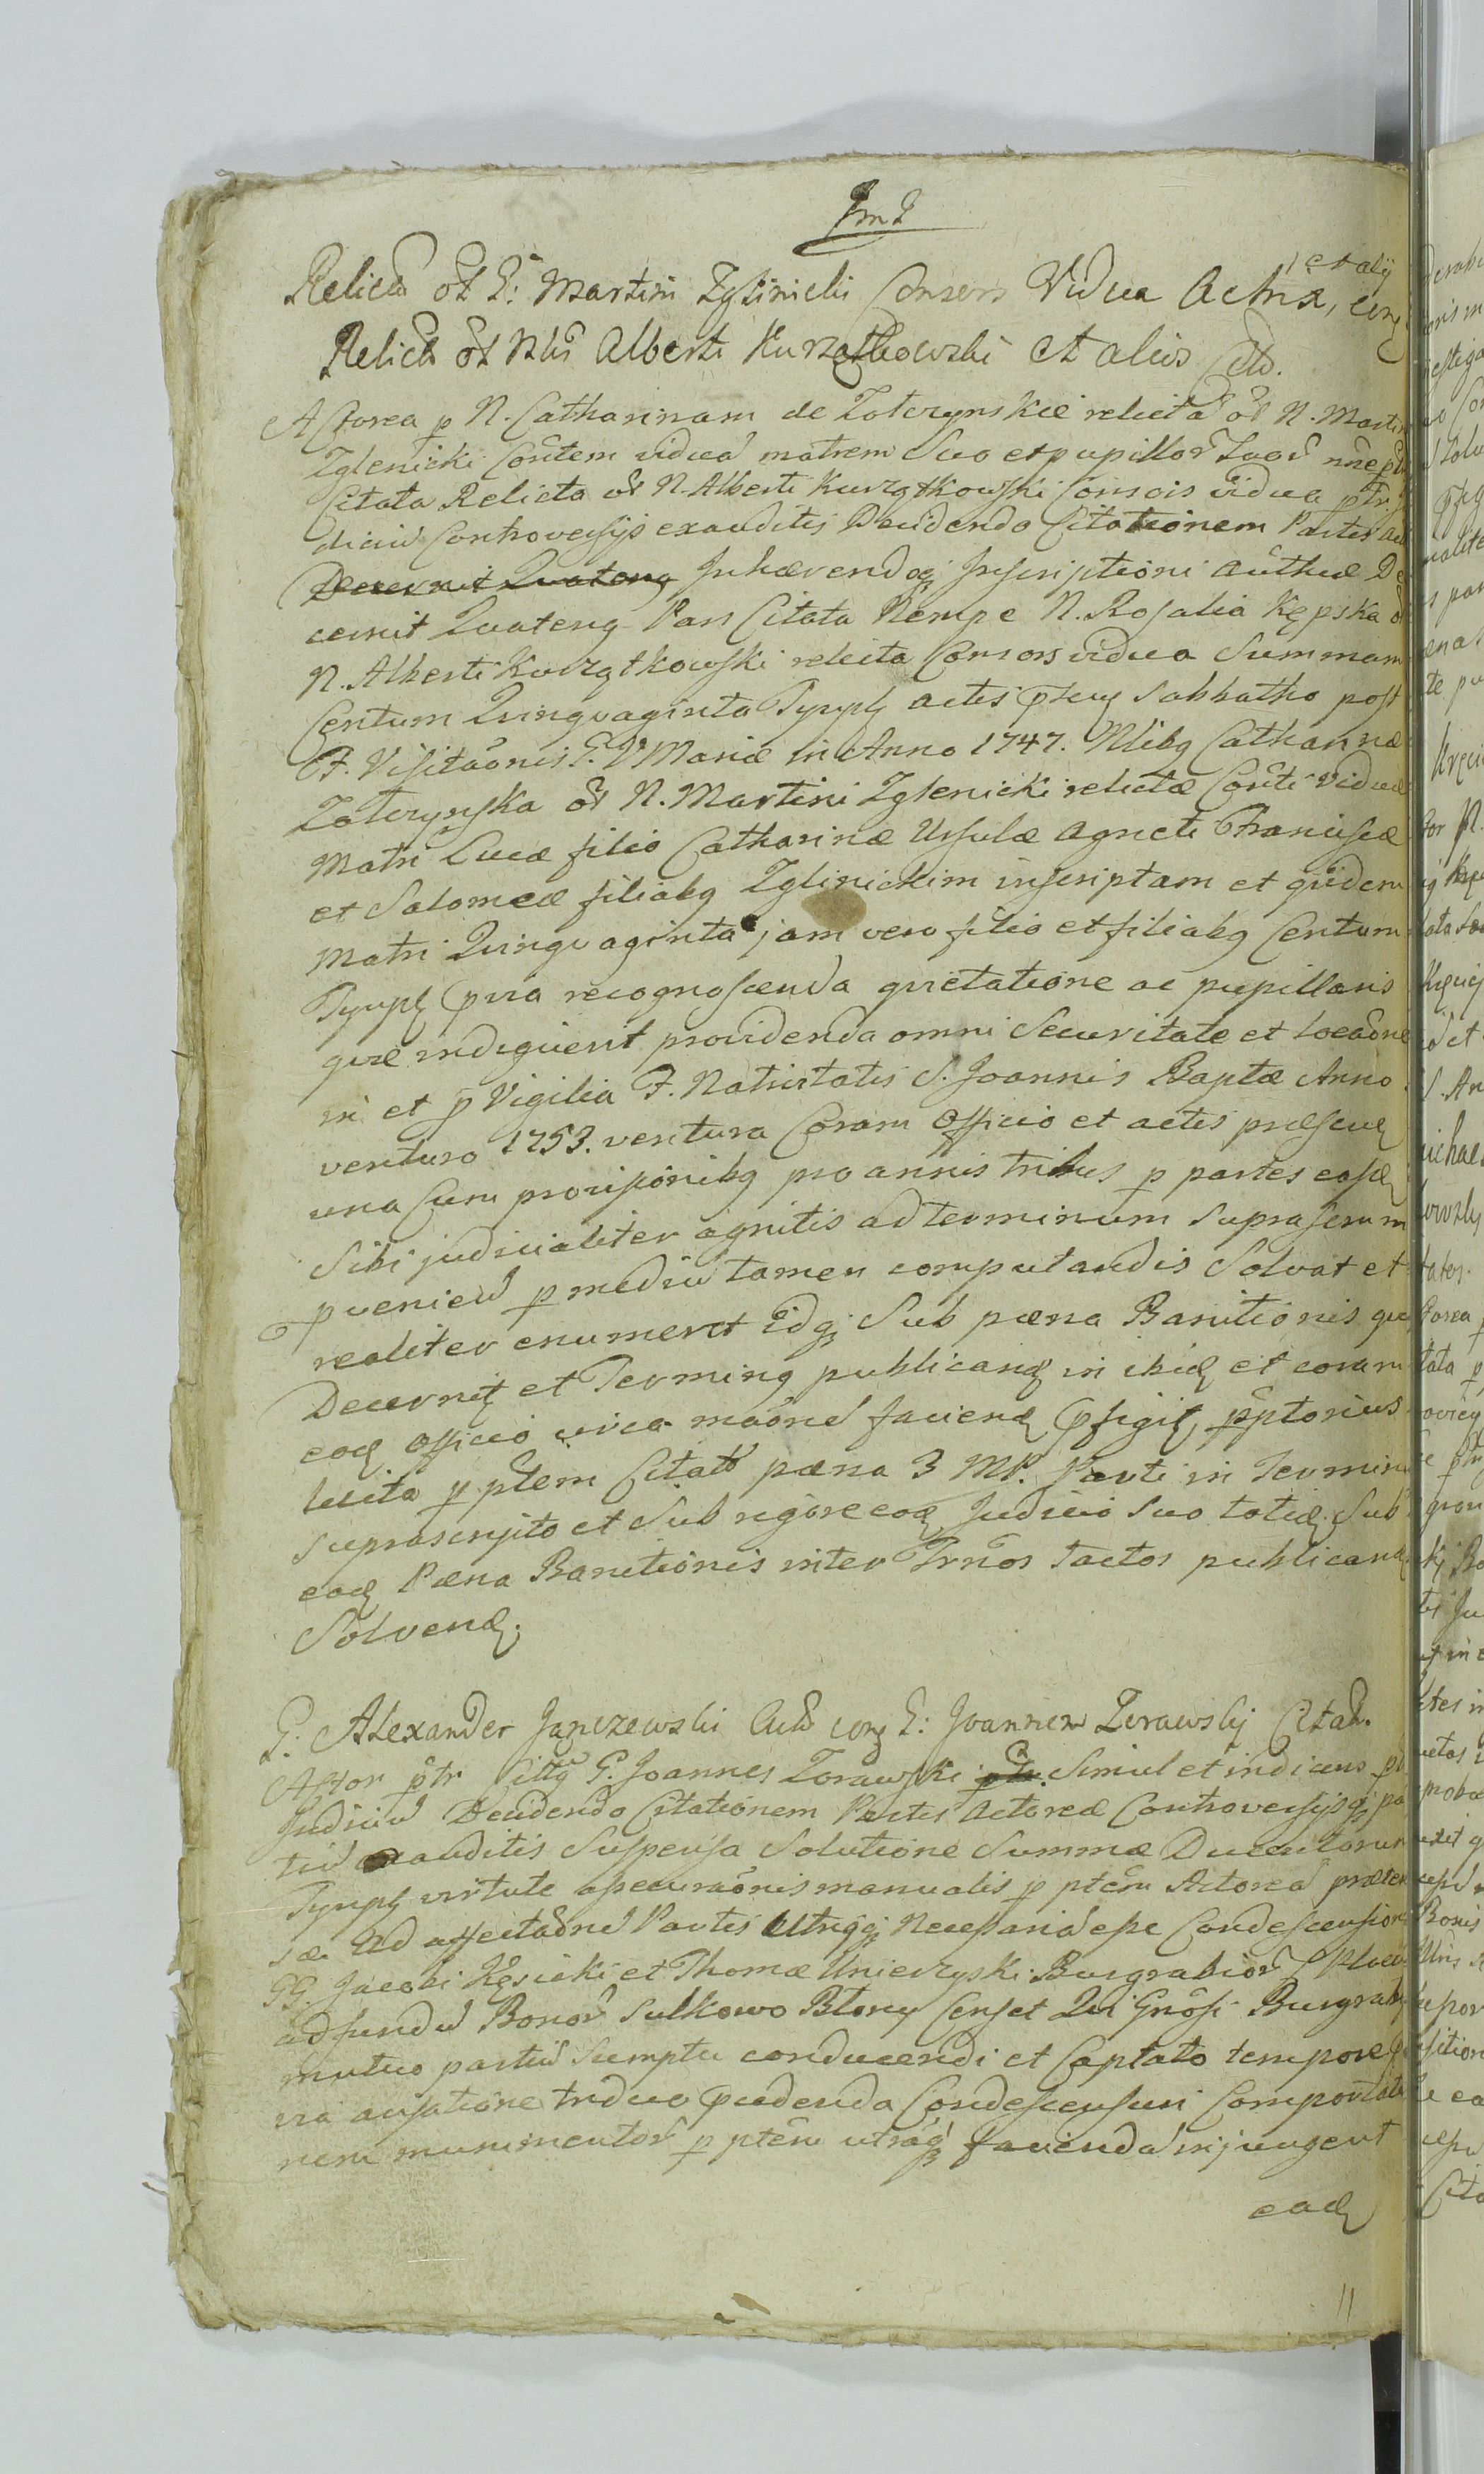 Relicta olim G: Martini Zglinicki Consors Vidua Actrix, et alij
Relicta olim Nblis Alberti Kurzątkowski et alios Citto.
Actorea p N. Catharinam de Zoterynskie relictã olim N. Martini
Zglenicki Contem viduã matrem suo et pupillorũ suorũ nñe
Citata Relicta olim N. Alberti Kurzątkowski Consors vidua ptr.
diciũ Controversijs exauditis Decidendo Citationem Partis
Decernit Quatenq Inhærendoqȝ Inscriptioni authæ De
cernit Quatenq Pars Citata Nempe N. Rosalia Kępska olim
N. Alberti Kurzątkowski relicta Consors vidua Summam
Centum Quinquaginta Tynph actis Sabbatho post
F. Visitaõnis B. V Mariæ in Anno 1747. Nlibq Catharinæ
Zoterynska olim N. Martini Zglenicki relictæ Conti Viduæ
Matri Lucæ filio Catharinæ Ursulæ Agneti Franciscæ
et Salomeæ filiabq Zglinickim inscriptam et quidem
Matri Quinquaginta jam vero filio et filiabq Centum
Tynph prvia recognoscenda quietatione ac pupillaris
quæ indiguerit providenda omni Securitate et locaõne
in et p Vigilia F. Nativitatis S. Joannis Baptæ Anno
venturo 1753. ventura Coram Officio et actis præsenq
una Cum provisionibq pro annis tribus p partes easdq
Sibi judicialiter agnitis ad terminum suprascrum
pveniend p mediũ tamen computandis Solvat et
realiter enumeret Idqȝ Sub pæna Banitionis que
Decernitq et Terminq publicandq in ibidq et coram
eodq Officio circa maõnem faciendq pfigitq, pptorius
lucita p ptem Citatã pæna 3 MP. Parti in Termino
suprascripto et Sub rigore eodq Judicio Suo totidq Sub
eadq Pæna Banitionis inter Trnos Tactos publicandq
Solvendq.
G: Alexander Janczewski Actor conq G: Joannem Zorawskj Citatũ.
Actor ptr Cittq G. Joannes Zorawski Simul et indicens
Judiciũ Decidendo Citationem Partis Actoreæ Controversijsqȝ par
tiũ auditis Suspensa Solutione Summæ Ducentorum
Tynph virtute assecuraõnis manualis p ptem Actoreã præten
sæ Ad affectaõnem Partis Utriqqȝ Necessariã esse Condescensionem
GG. Jacobi Kęsicki et Thomæ Unierzyski Burgrabiorũ Ploceñ
ad fundũ Bonorũ Sulkowo Błony Censet Qui Gnosi Burgrabij
mutuo partiũ Sumptu conducendi et Captato tempore
via avisatione triduo pcedenda Condescensuri Comportatio
nem munimentorũ p ptem utrãqȝ facienda injungent
eadq
11